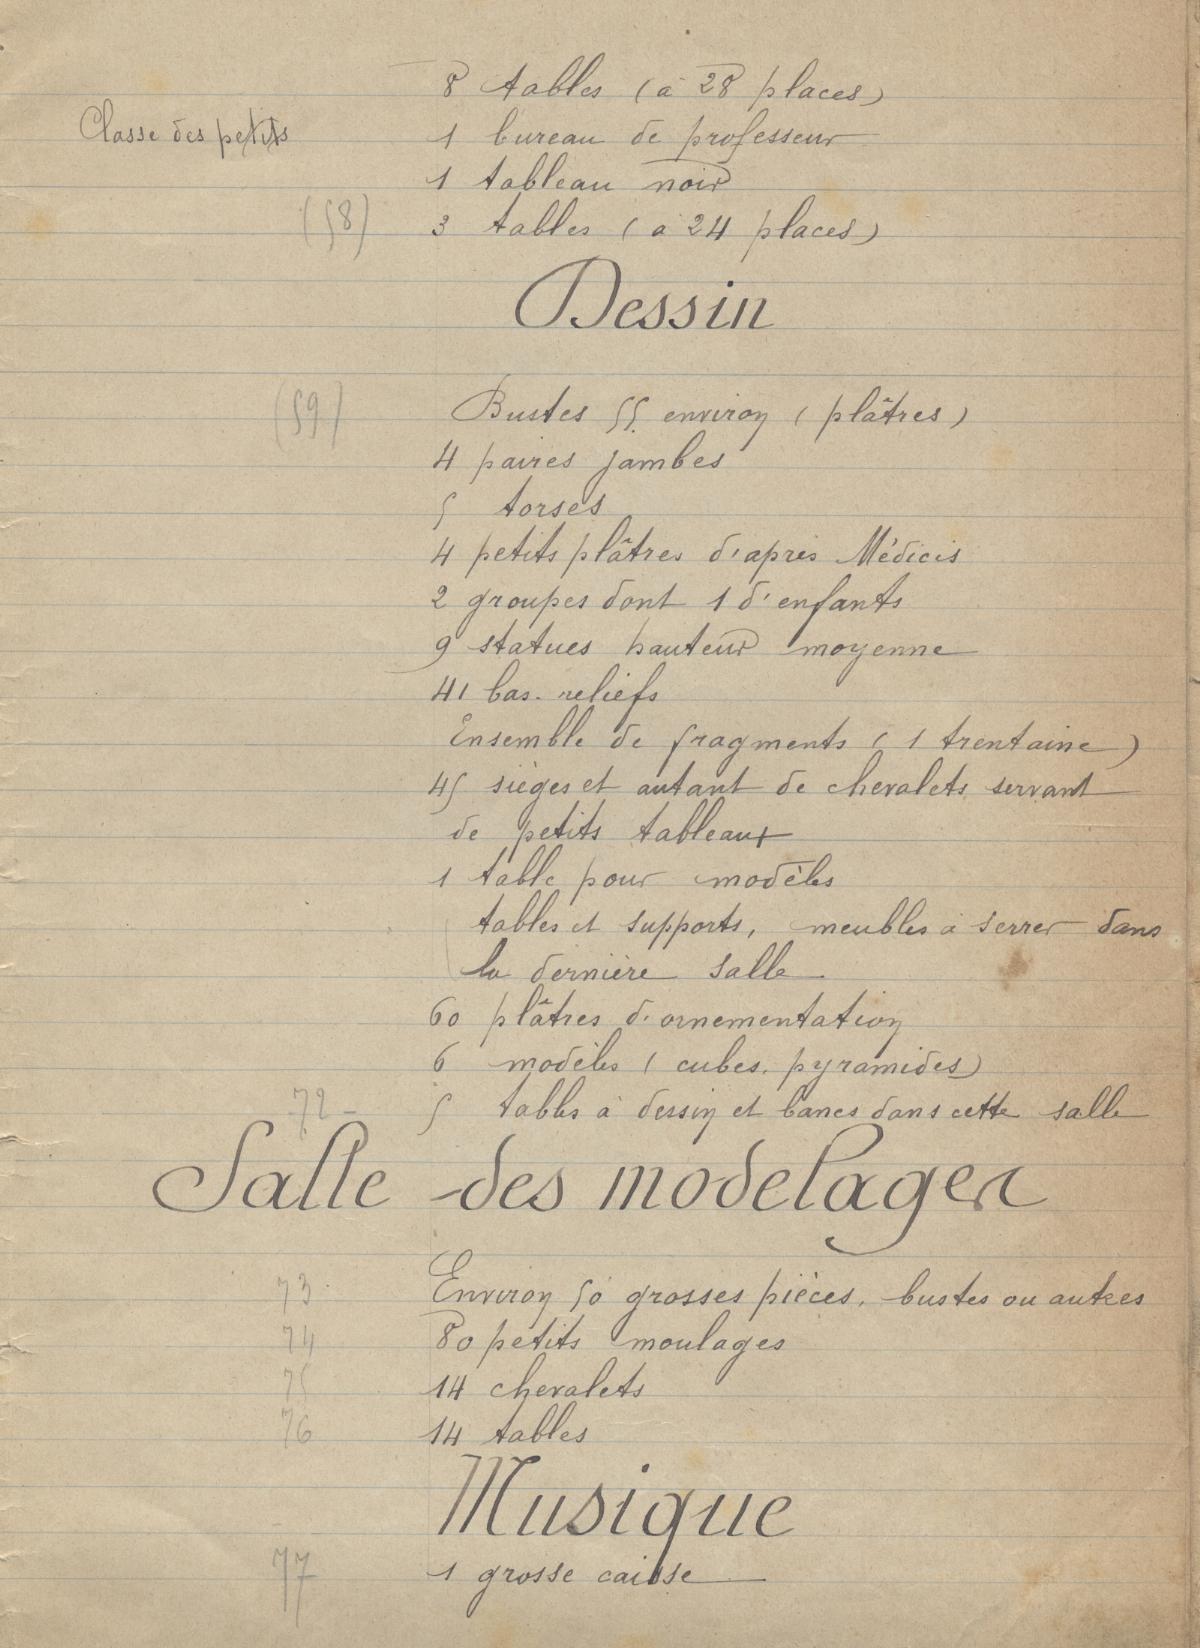 8 tables (à 28 places)
Classe des petits
1 bureau de professeur
1 tableau noir
(58)
3 tables (à 24 places)
Dessin
(59)
Bustes 55 environ (plâtres)
4 paires jambes
5 torses
4 petits plâtres d'après Médicis
2 groupes dont 1 d'enfants
9 statues hauteur moyenne
41 bas-reliefs
Ensemble de fragments (1 trentaine)
45 sièges et autant de chevalets servant
de petits tableaux
1 table pour modèles
tables et supports, meubles à serrer dans
la dernière salle
60 plâtres d'ornementation
6 modèles (cubes, pyramides)
72 -
5 tables à dessin et bancs dans cette salle
Salle des modelages
73
Environ 50 grosses pièces, bustes ou autres
74
80 petits moulages
75
14 chevalets
76
14 tables
Musique
77
1 grosse caisse